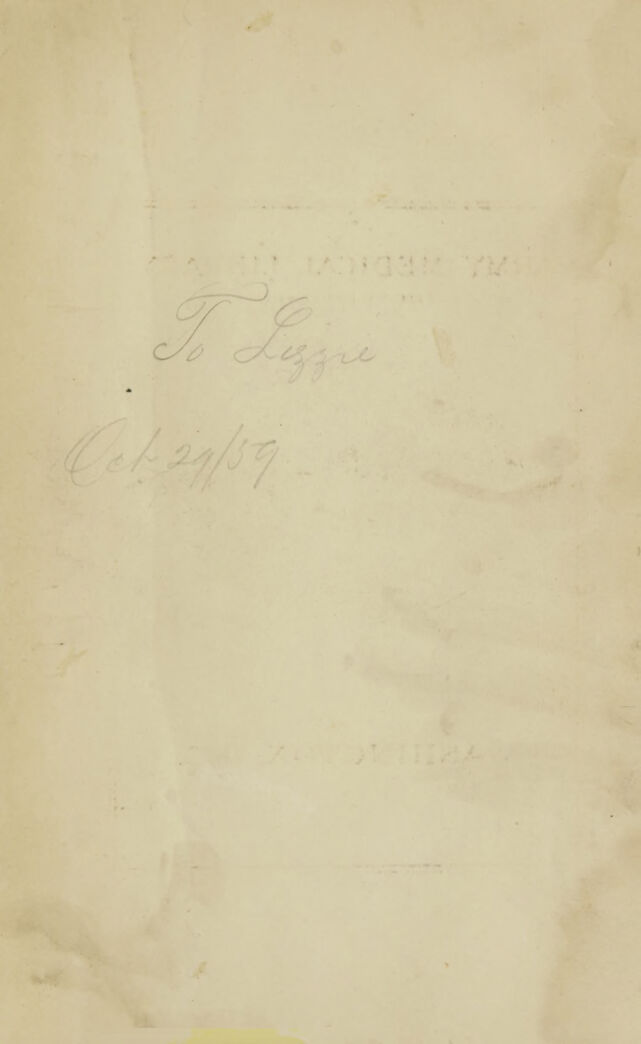 To Lizzie
Oct 29/59